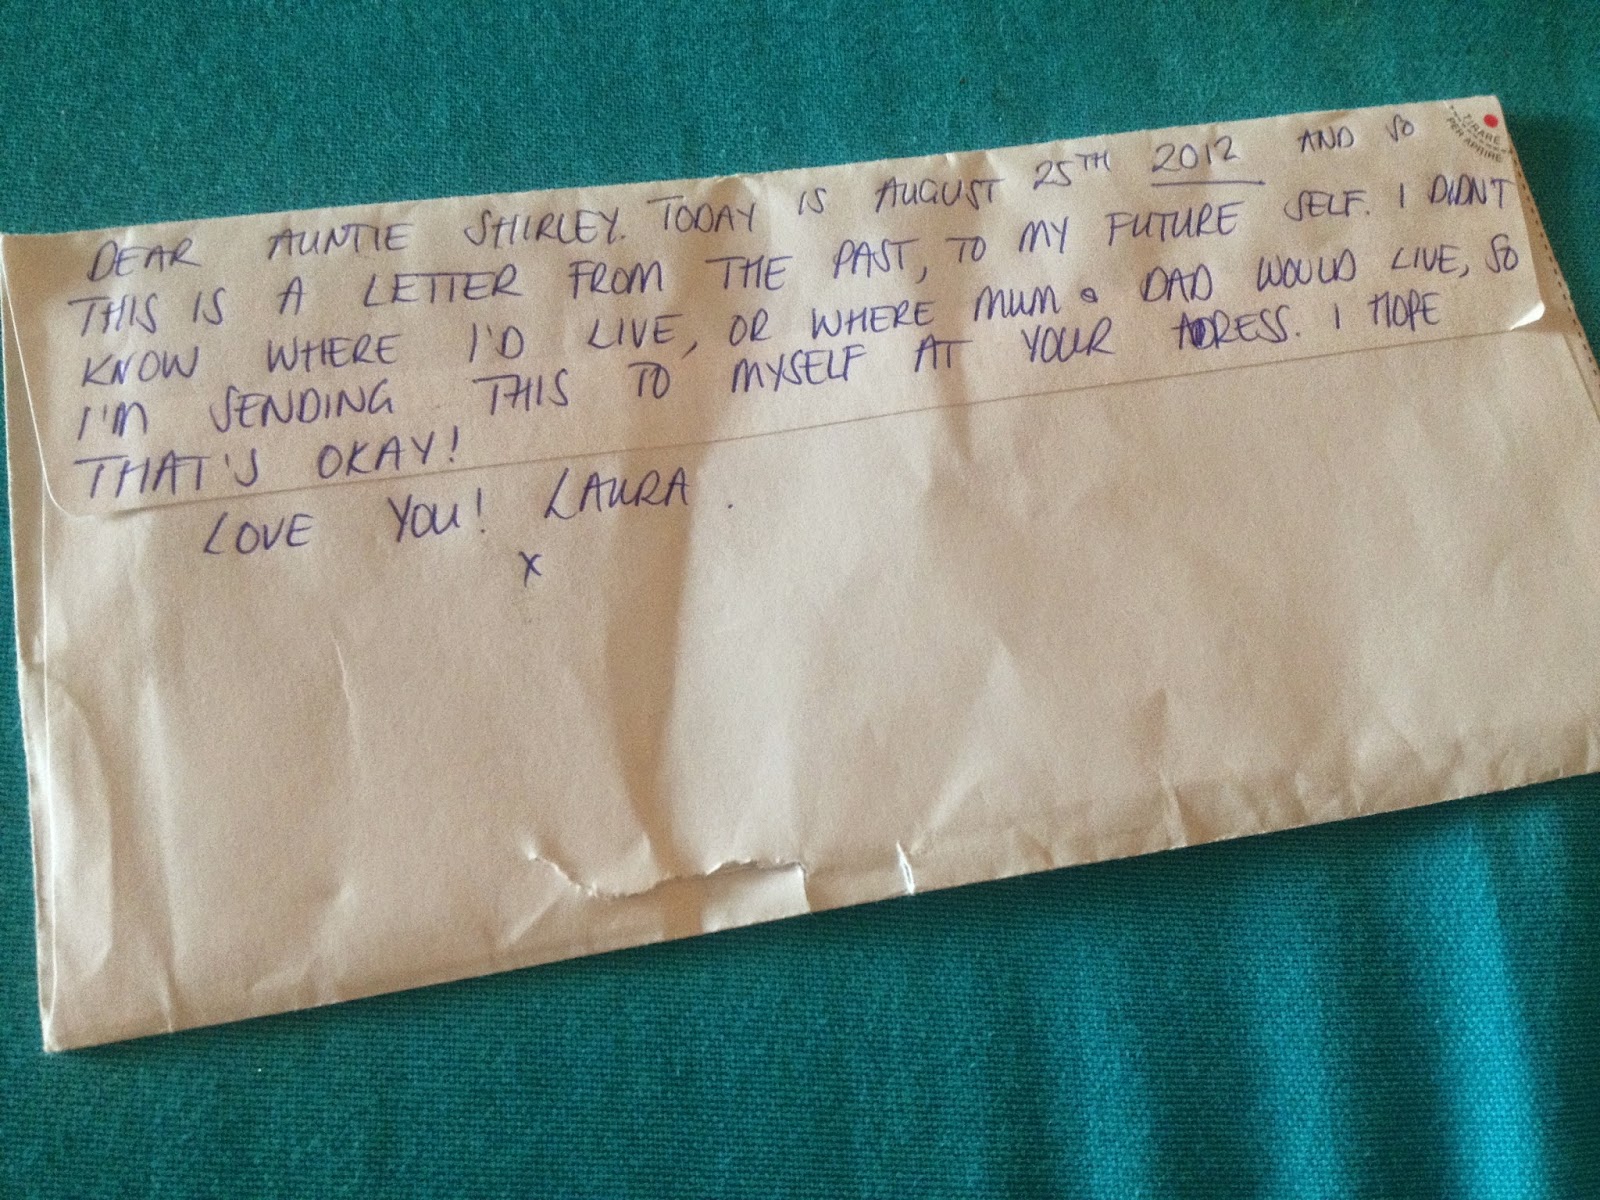 DEAR AUNTIE SHIRLEY. TODAY IS AUGUST 25TH 2012 AND SO
THIS IS A LETTER FROM THE PAST, TO MY FUTURE SELF. I DIDNT
KNOW WHERE I'D LIVE, OR WHERE MUM & DAD WOULD LIVE, SO
I'M SENDING THIS TO MYSELF AT YOUR ADRESS. I HOPE
THAT'S OKAY!
LOVE YOU! LAURA.
x
TIRARE
PER APRIRE